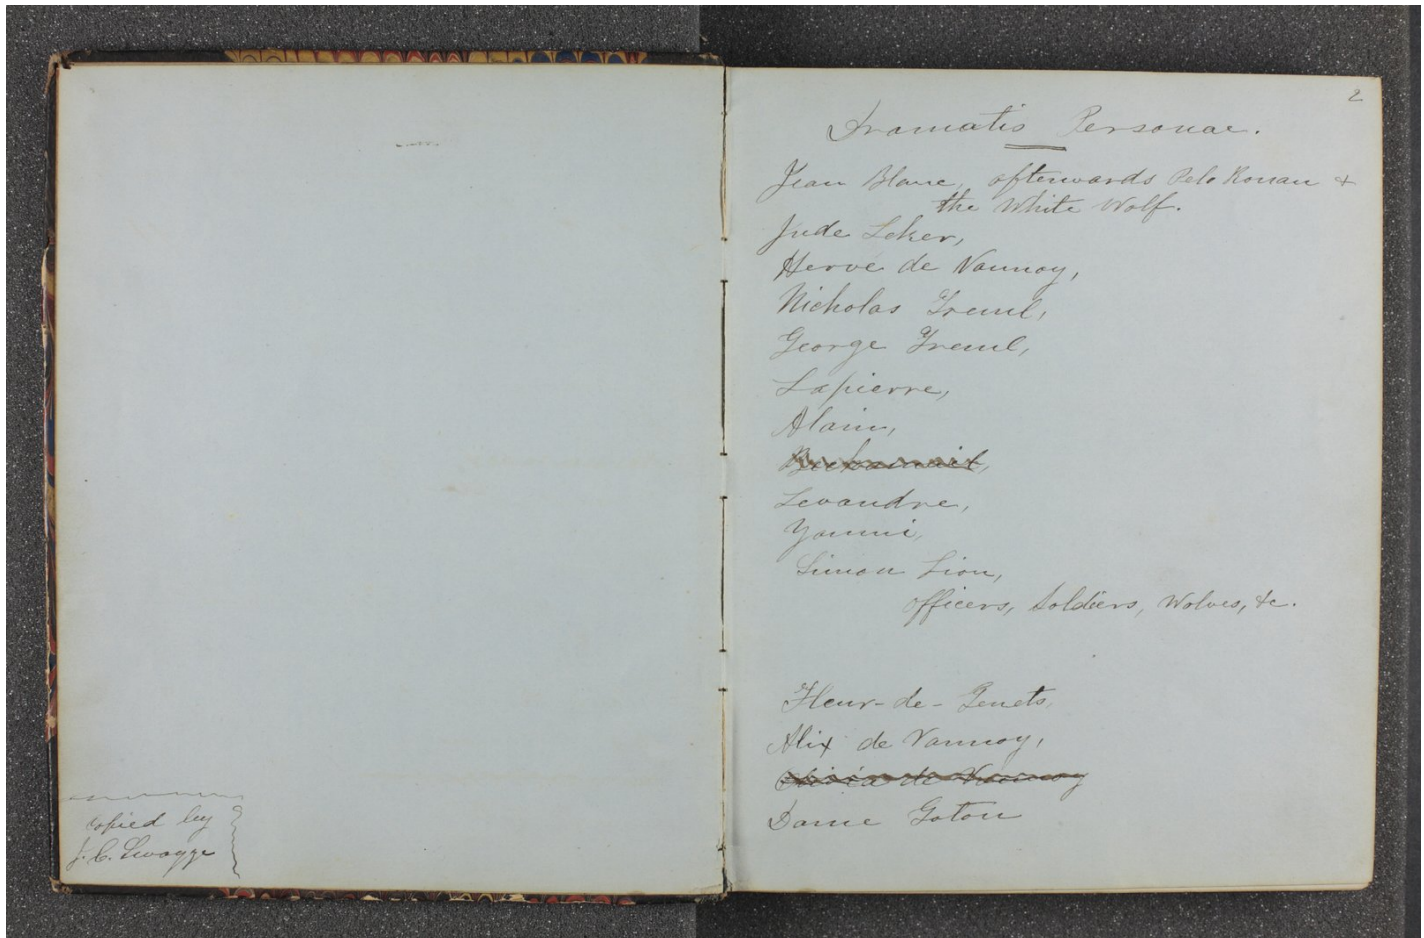 copied by
J. C. Swayze
2
Dramatis Personae.
Jean Blanc, afterwards Pelo Rouan &
the White Wolf.
Jude Leker,
Hervé de Vaunoy,
Nicholas Treml,
George Treml,
Lapierre,
Alain,
Levandre,
Yaumi,
Simon Lion,
Officers, Soldiers, Wolves, &c.
Fleur-de-Genets,
Alix de Vaunoy,
Olivia de Vaunoy
Dame Goton